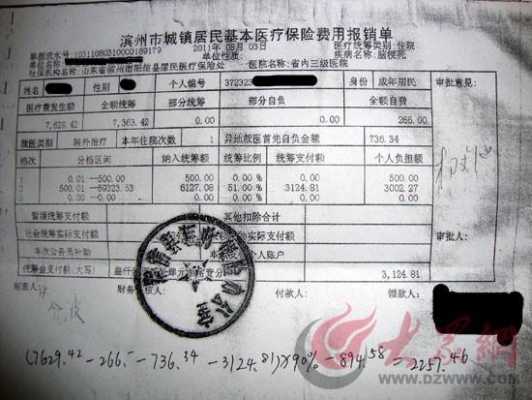 滨州市城镇居民基本医疗保险费用报销单
单据流水号: 2011年 08月 03日 医疗统筹类别 住院
单位性质: 疾病名称: 脑梗死
社保机构名称: 山东省滨州市阳信县居民医疗保险处 医院名称: 省内三级医院
姓名 性别 个人编号 372323 身份 成年居民 审批意见:
医疗费发生额 全额统筹 部分统筹 部分自负 全额自费
7,629.42 7,363.42 0.00 0.00 266.00
就医类别 转外治疗 本年住院次数 1 异地就医首先自负金额 736.34
档次 分档区间 纳入统筹额 统筹比例 统筹支付额 个人负担额
0.01 --500.00 500.00 0.00 % 0.00 500.00
500.01 6127.08 51.00 % 3124.81 3002.27
0.00 0.00 % 0.00 0.00
暂缓统筹支付额 其他扣除合计
社会统筹实际支付额 实际支付额 审批人:
本次公务员补助 个人账户
统筹金支付额(大写) 3,124.81
制单人: 财务 付款人: 领款人:
(7629.42 - 266.- - 736.34 - 3124.81)×90% - 894.58 - 2257.46
大众网
WWW.DZWWW.COM